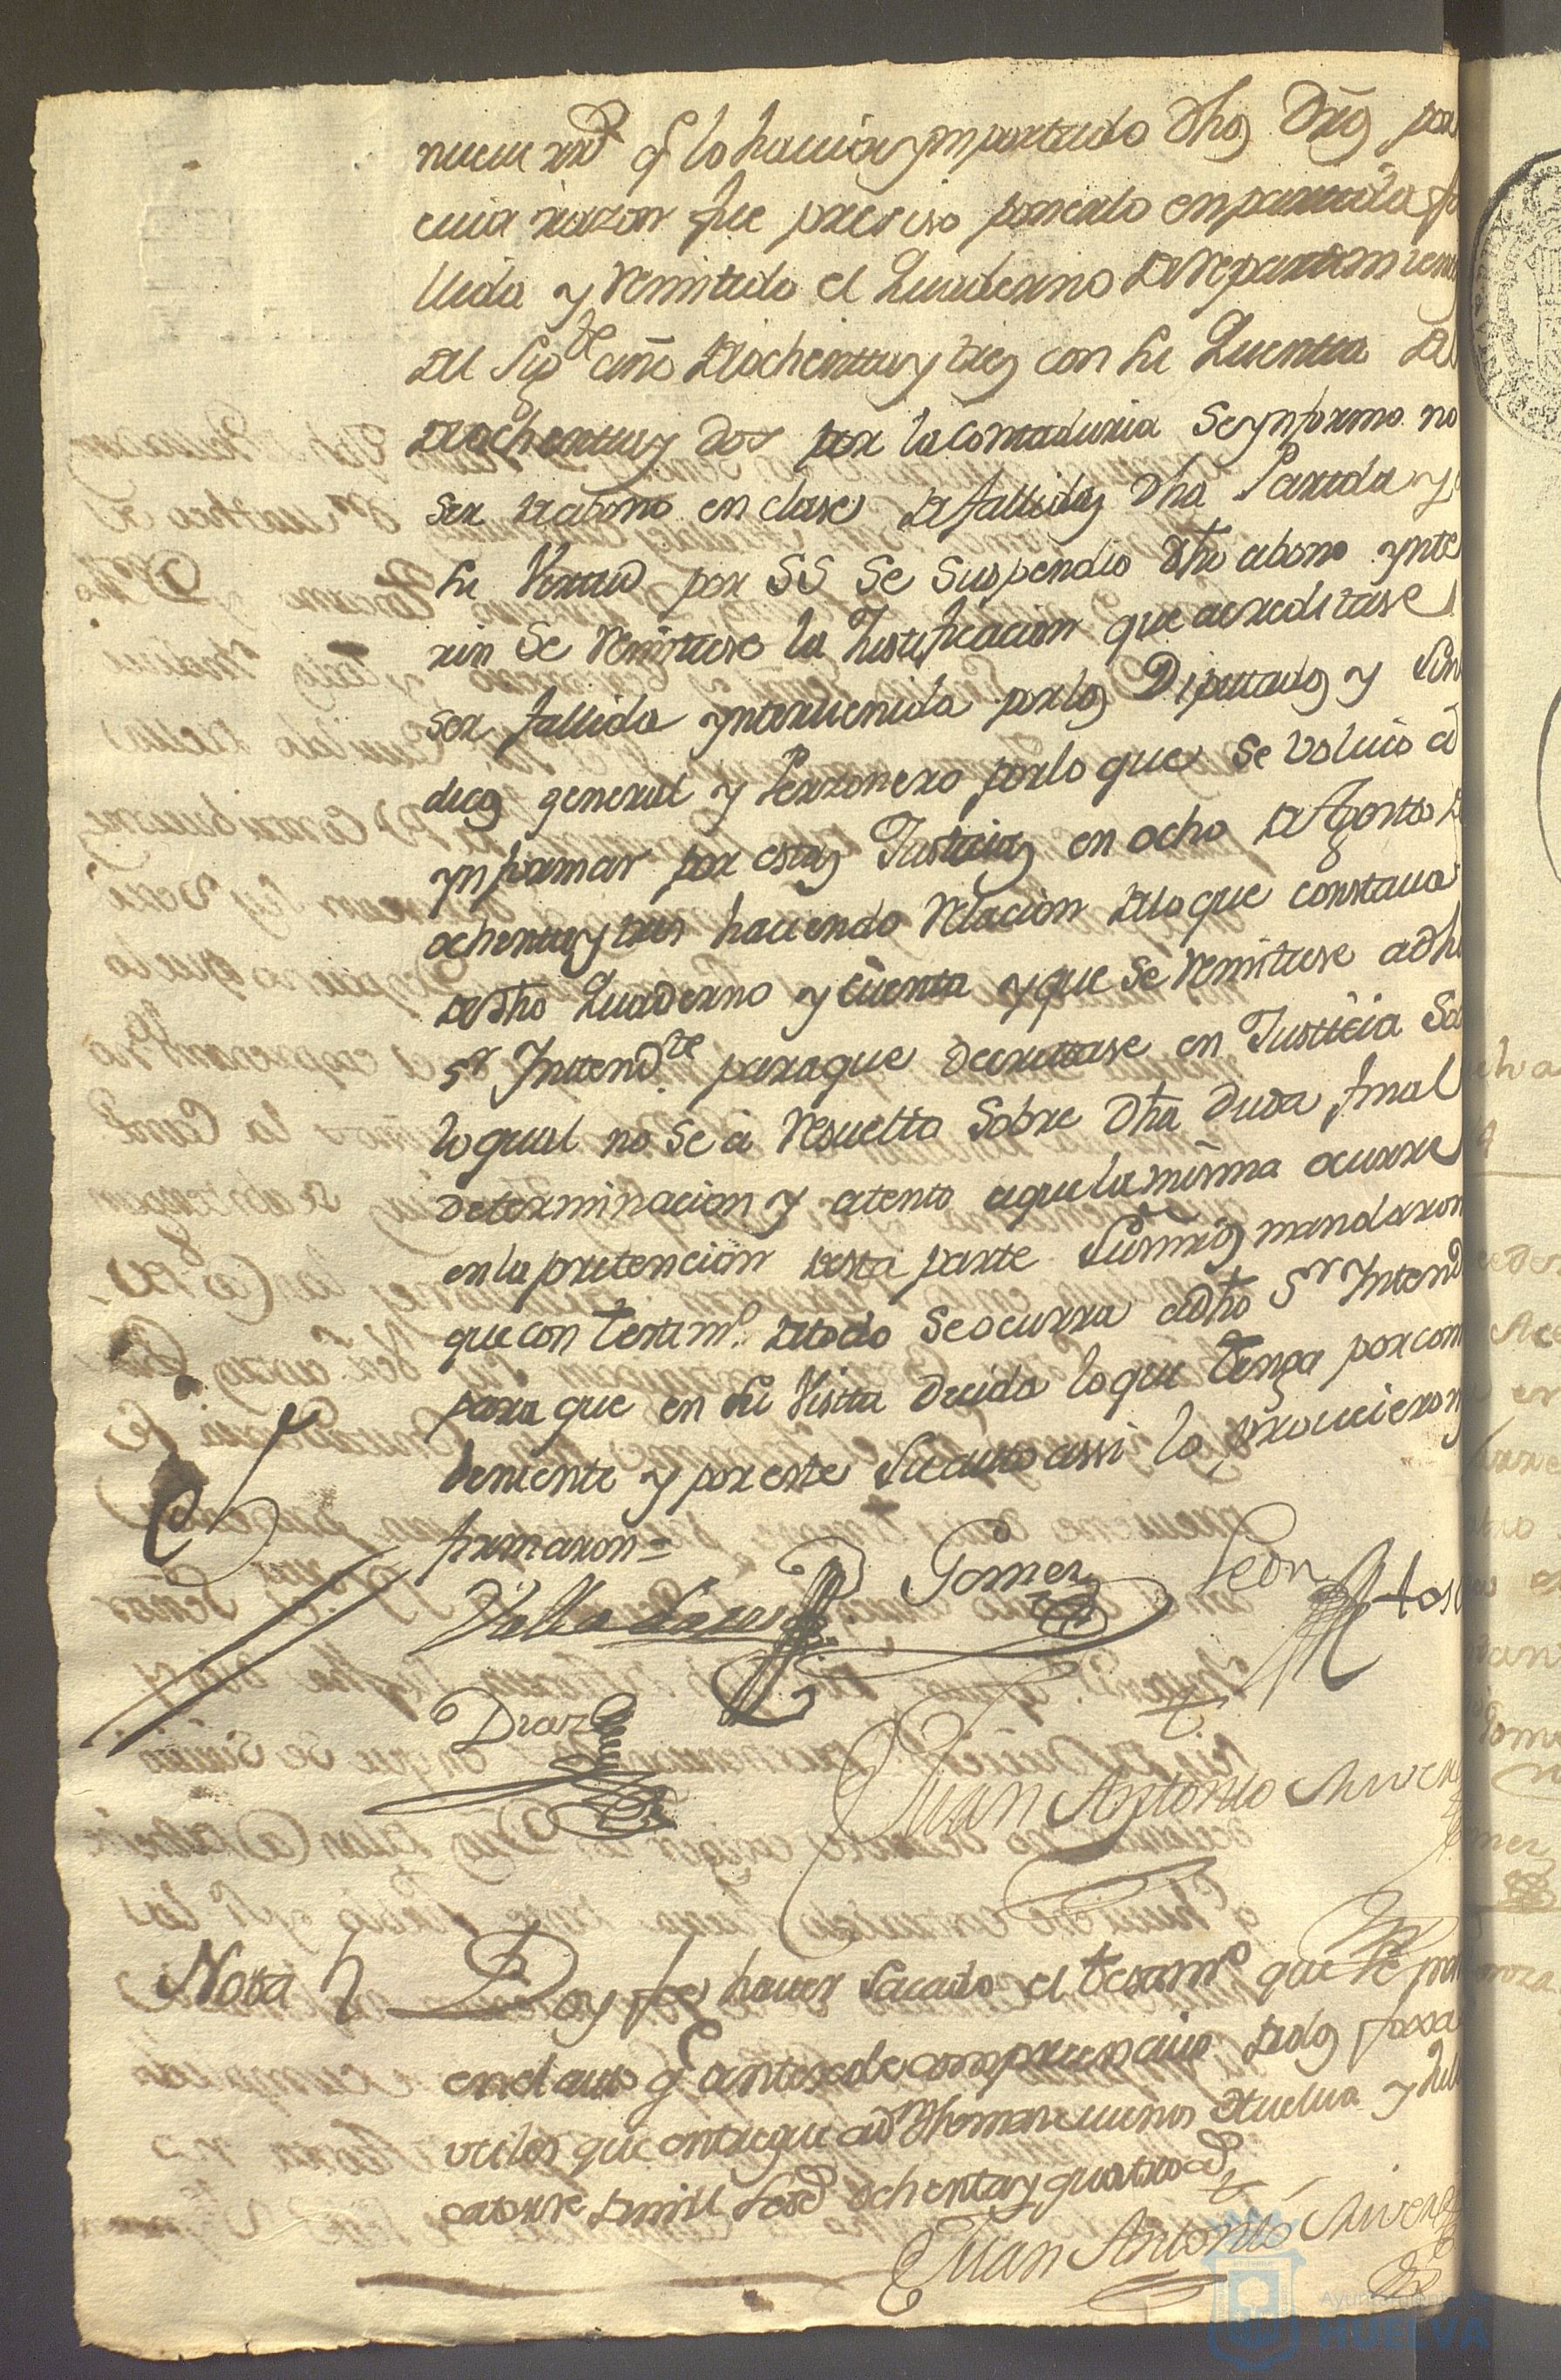 nueve rrs q.e lo havia ymportado dhos Dros por
cuia razon fue preciso ponerlo en partida fa
llida y remitido el Quaderno de repartimien
del sig.te año de ochenta y tres con su Quenta de
de ochenta y dos por la Contaduria se ynformo no
ser de abono en clase de fallidas dha Partida y
su Virtud por SS se suspendio dho abono ynte
rin se remitiese la Justificacion que acreditase
ser fallida yntervenida por los Diputados y Sin
dicos general y Perzonero por lo que se volvio a
ynformar por estas Justicias en ocho de Agosto de
ochenta y tres haciendo relacion de lo que constava
de dho Quaderno y cuenta y que se remitiese a dho
S.r Intend.te para que decretase en Justicia So
lo qual no se a resuelto sobre dha duda final
determinacion y atento a que la misma ocurre
en la pretencion desta parte Sus mrds mandaron
que con testim.o de todo se ocurra a dho S.r Intend
para que en su Vista decida lo que tenga por com
beniente y por este su auto assi lo proveieron y
firmaron =
Gomez
Leon
Diaz
Juan Antonio
Nota
Doy fee haver sacado el testim.o que se pre
en el auto q.e antesede comprencivo de dos foxas
utiles que entregue a d.n Huelva y Julio
catorse de mill sets.s ochenta y quatro a.s
Juan Antonio
Ayuntamiento
HUELVA